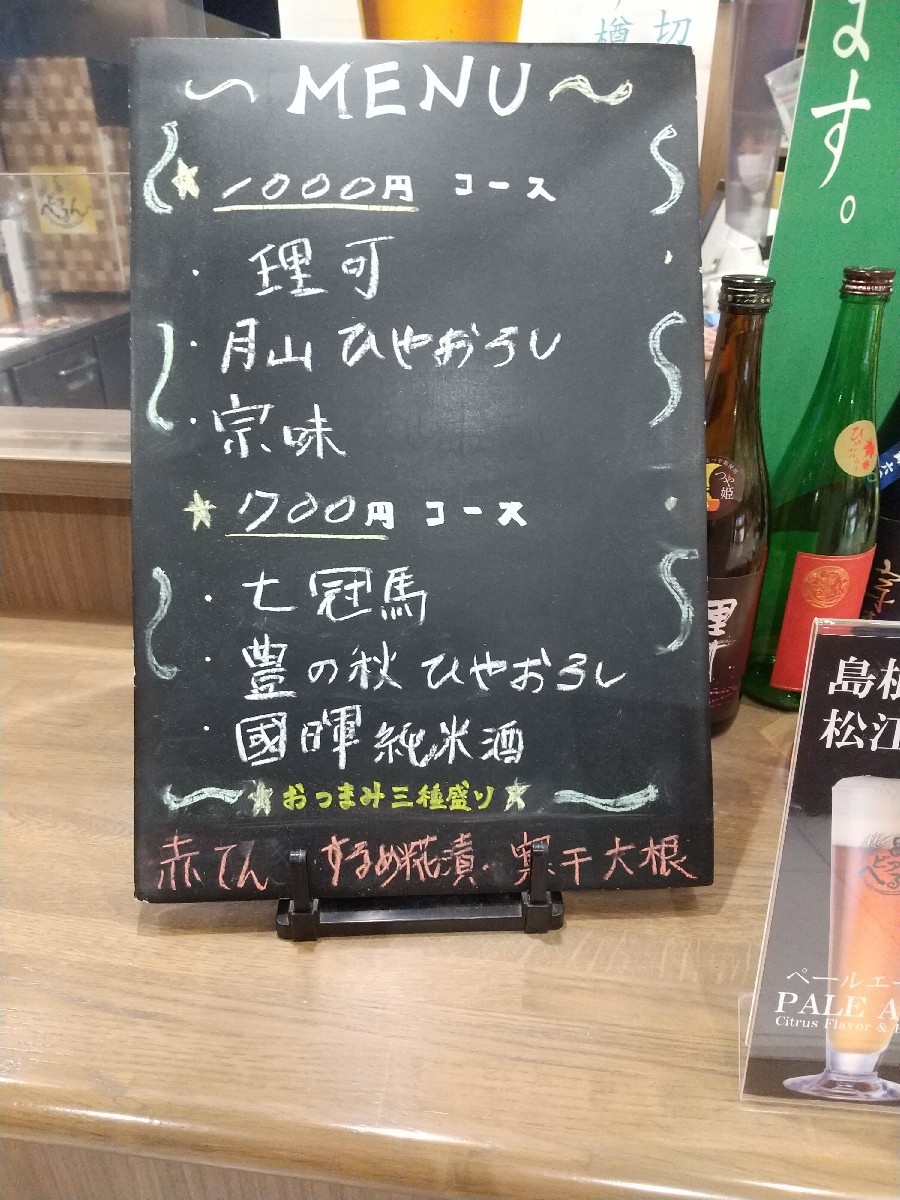 樽 切
ます。
～ MENU ～
★ 1000円 コース
・ 理可
・ 月山 ひやおろし
・ 宗味
★ 700円 コース
・ 七冠馬
・ 豊の秋 ひやおろし
・ 國暉 純米酒
☆ おつまみ三種盛り ☆
赤てん ・ するめ糀漬 ・ 寒干大根
つや姫
島根
松江
ペールエー
PALE A
Citrus Flavor &